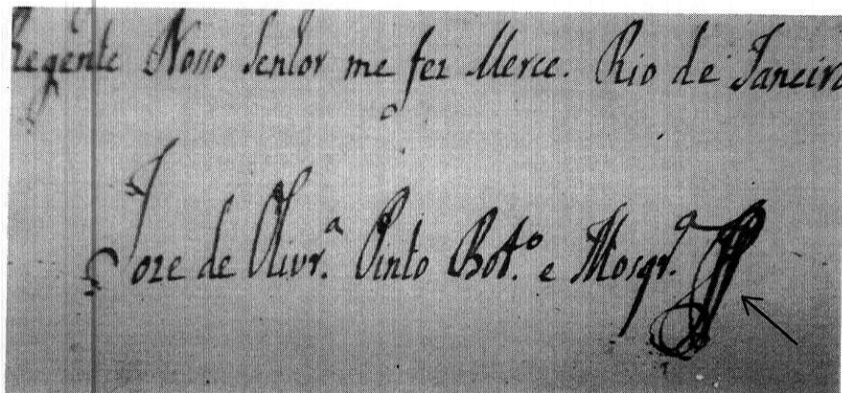 Regente Nosso Senhor me fez Merce. Rio de Janeiro
Joze de Olivr.ª Pinto Bot.º e Mosqr.ª